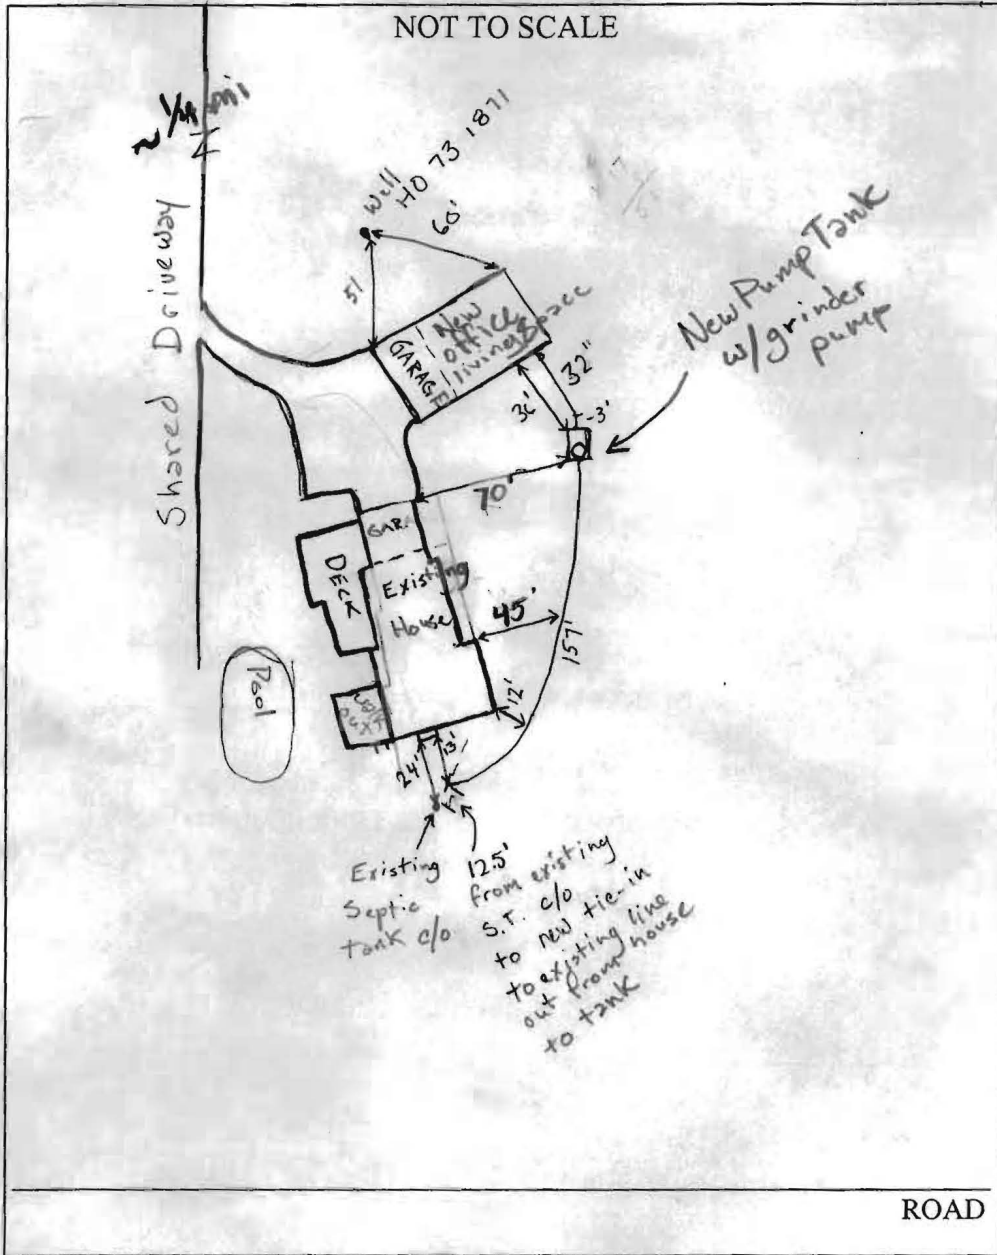 NOT TO SCALE
~ 1/4 mi
Shared Driveway
Well
HO 73 1871
60'
51
GARAGE
New
office
living space
New Pump Tank
w/grinder
pump
32"
36'
3'
70'
GARA
DECK
Existing
House
45'
157'
Pool
12'
24'
13'
Existing
Septic
tank c/o
12.5'
from existing
S.T. c/o
to new tie-in
to existing line
out from house
to tank
ROAD